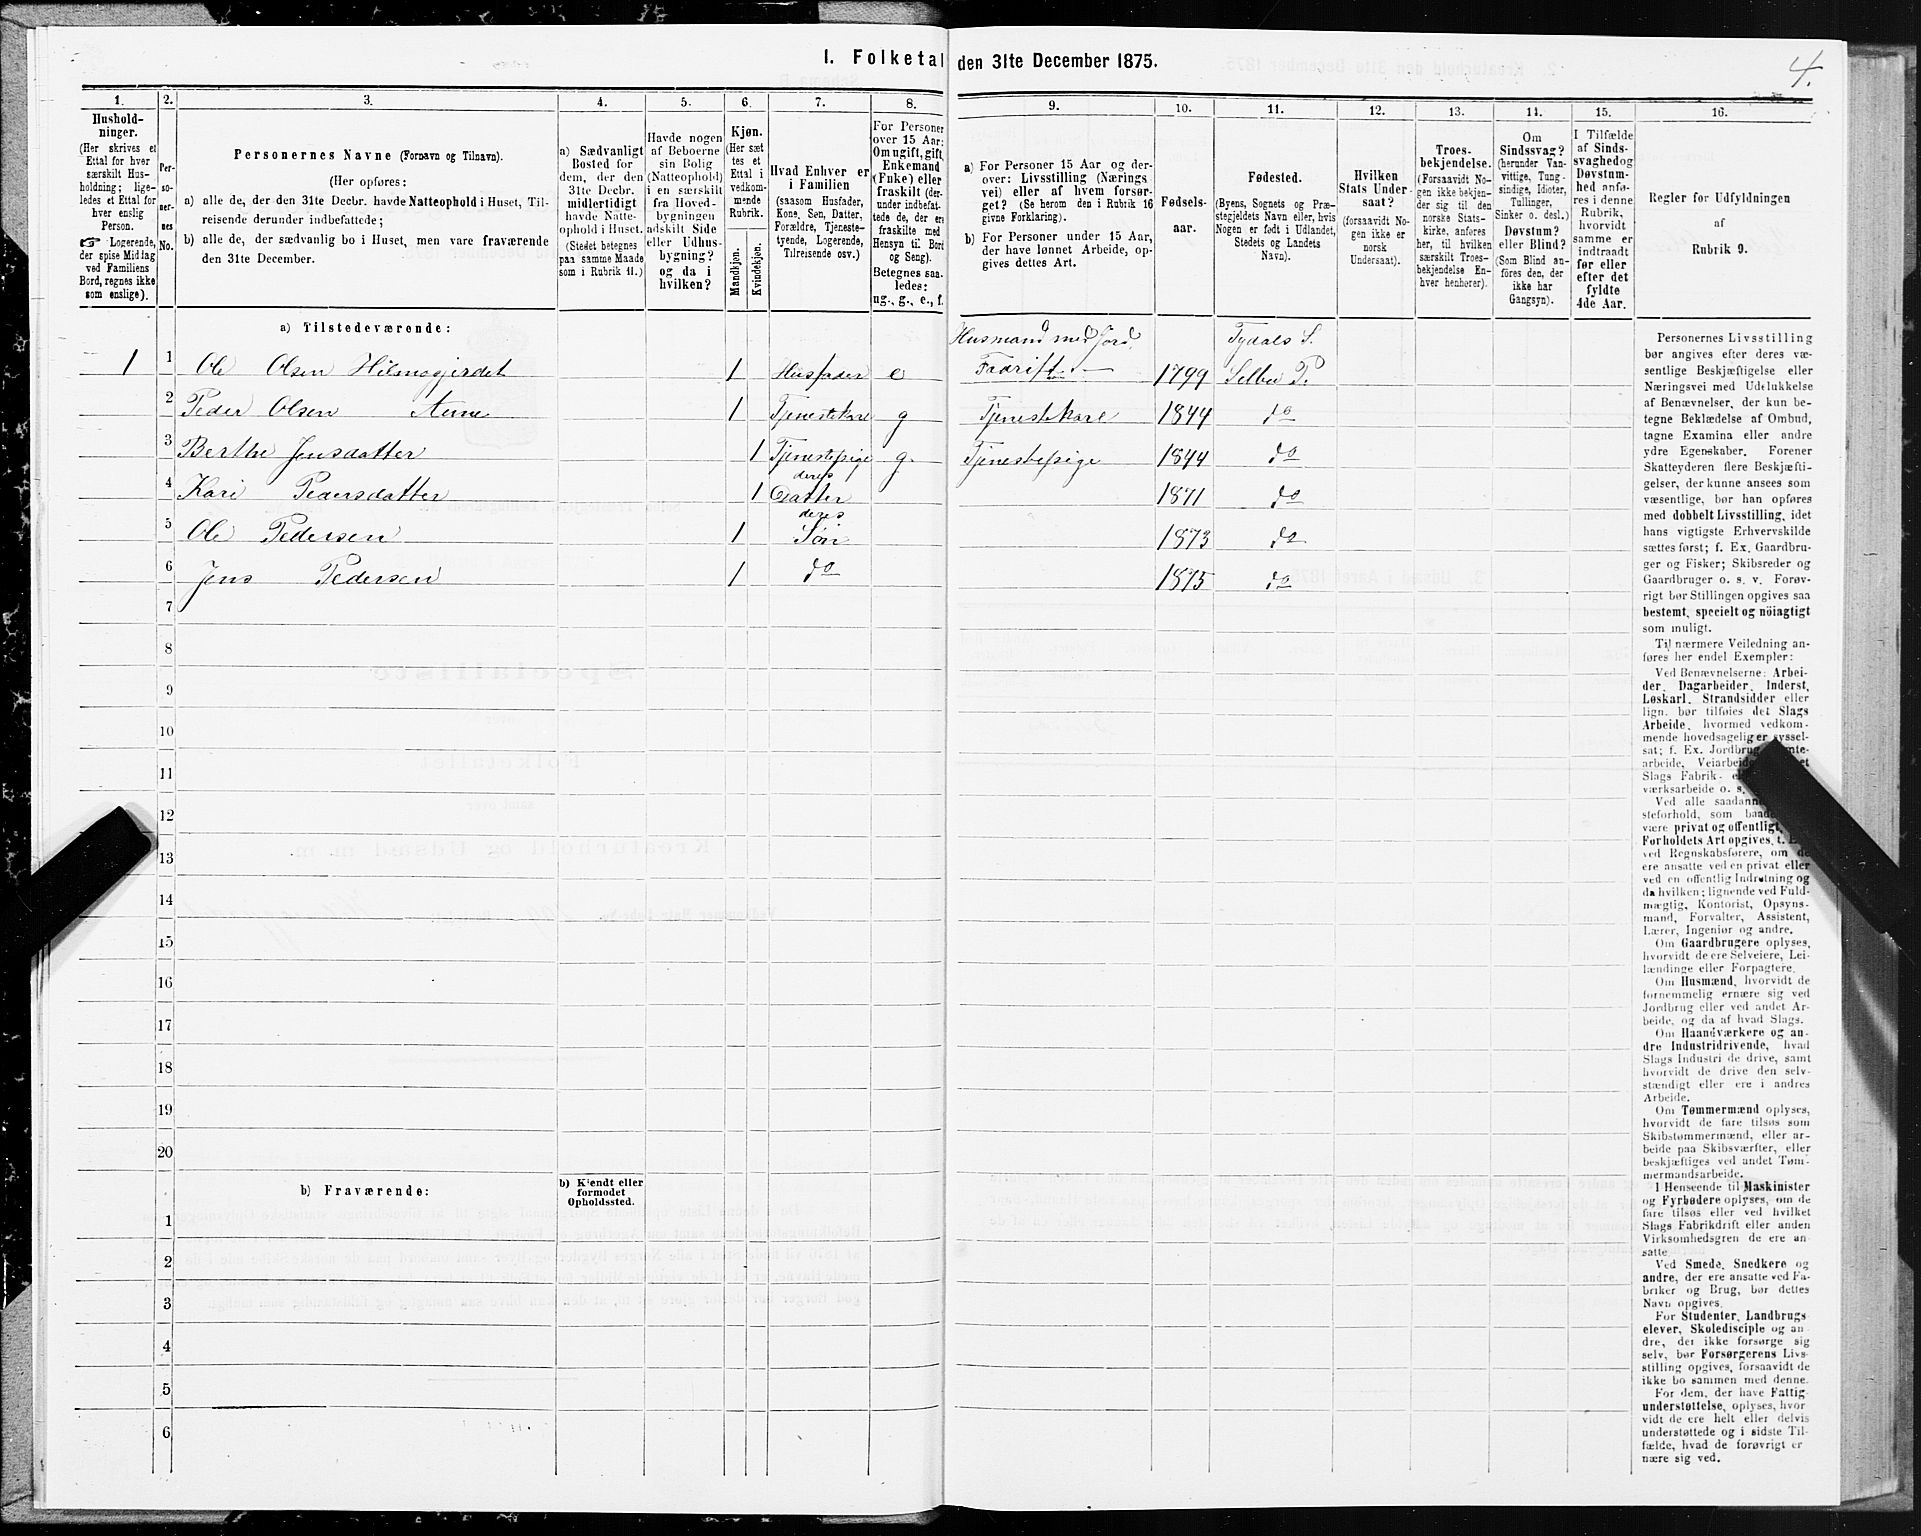 I. Folketal den 31te December 1875.
4.
1.
Hushold-
ninger.
(Her skrives et
Ettal for hver
særskilt Hus-
holdning; lige-
ledes et Ettal for
hver enslig
Person.
☞ Logerende,
der spise Middag
ved Familiens
Bord, regnes ikke
som enslige).
2.
Per-
so-
ner-
nes
No.
3.
Personernes Navne (Fornavn og Tilnavn).
(Her opføres:
a) alle de, der den 31te Decbr. havde Natteophold i Huset, Til-
reisende derunder indbefattede;
b) alle de, der sædvanlig bo i Huset, men vare fraværende
den 31te December.
4.
a) Sædvanligt
Bosted for
dem, der den
31te Decbr.
midlertidigt
havde Natte-
ophold i Huset.
(Stedet betegnes
paa samme Maade
som i Rubrik 11.)
5.
Havde nogen
af Beboerne
sin Bolig
(Natteophold)
i en særskilt
fra Hoved-
bygningen
adskilt Side
eller Udhus-
bygning?
og da i
hvilken?
6.
Kjøn.
(Her sæt
tes et
Ettal i
vedkom-
mende
Rubrik.
Mandkjøn.
Kvindekjøn.
7.
Hvad Enhver er
i Familien
(saasom Husfader,
Kone, Søn, Datter,
Forældre, Tjeneste-
tyende, Logerende,
Tilreisende osv.)
8.
For Personer
over 15 Aar:
Om ugift, gift,
Enkemand
(Enke) eller
fraskilt (der-
under indbefat-
tede de, der ere
fraskilte med
Hensyn til Bord
og Seng).
Betegnes saa-
ledes:
ug., g., e., f.
9.
a) For Personer 15 Aar og der-
over: Livsstilling (Nærings-
vei) eller af hvem forsør-
get? (Se herom den i Rubrik 16
givne Forklaring).
b) For Personer under 15 Aar,
der have lønnet Arbeide, op-
gives dettes Art.
10.
Fødsels-
aar.
11.
Fødested.
(Byens, Sognets og Præ-
stegjeldets Navn eller, hvis
Nogen er født i Udlandet,
Stedets og Landets
Navn).
12.
Hvilken
Stats Under-
saat?
(forsaavidt No-
gen ikke er
norsk
Undersaat).
13.
Troes-
bekjendelse.
(Forsaavidt No-
gen ikke bekjen-
der sig til den
norske Stats-
kirke, anføres
her, til hvilken
særskilt Troes-
bekjendelse En-
hver henhører).
14.
Om
Sindssvag?
(herunder Van-
vittige, Tung-
sindige, Idioter,
Tullinger,
Sinker o. desl.)
Døvstum?
eller Blind?
(Som Blind an-
føres den, der
ikke har
Gangsyn).
15.
I Tilfælde
af Sinds-
svaghed og
Døvstum-
hed anfø-
res i denne
Rubrik,
hvorvidt
samme er
indtraadt
før eller
efter det
fyldte
4de Aar.
16.
Regler for Udfyldningen
af
Rubrik 9.
a) Tilstedeværende:
Husmand med Jord. Tydals S.
1 1 Ole Olsen Hilmogjerdet 1 Husfader e Fadrift 1799 Selbu P.
2 Peder Olsen Aune 1 Tjenestekarl g Tjenestekarl 1844 do
3 Berthe Jensdatter 1 Tjenestepige g. Tjenestepige 1844 do
deres
4 Kari Pedersdatter 1 Datter 1871 do
deres
5 Ole Pedersen 1 Søn 1873 do
6 Jens Pedersen 1 do 1875 do
7
8
9
10
11
12
13
14
15
16
17
18
19
20
b) Fraværende:
b) Kjendt eller
formodet
Opholdssted.
1
2
3
4
5
6
Personernes Livsstilling
bør angives efter deres væ-
sentlige Beskjæftigelse eller
Næringsvei med Udelukkelse
af Benævnelser, der kun be-
tegne Beklædelse af Ombud,
tagne Examina eller andre
ydre Egenskaber. Forener
Skatteyderen flere Beskjæfti-
gelser, der kunne ansees som
væsentlige, bør han opføres
med dobbelt Livsstilling, idet
hans vigtigste Erhvervskilde
sættes først; f. Ex. Gaardbru-
ger og Fisker; Skibsreder og
Gaardbruger o. s. v. Forøv-
rigt bør Stillingen opgives saa
bestemt, specielt og nöiagtigt
som muligt.
Til nærmere Veiledning an-
føres her endel Exempler:
Ved Benævnelserne: Arbei-
der, Dagarbeider, Inderst,
Løskarl, Strandsidder eller
lign. bør tilføies det Slags
Arbeide, hvormed vedkom-
mende hovedsagelig er syssel-
sat; f. Ex. Jordbrug,
arbeide, Veiarbeide
Slags Fabrik-
værksarbeide o. s.
Ved alle saadanne
steforhold, som baade
være privat og offentligt,
Forholdets Art opgives, t.
ved Regnskabsførere, om de
ere ansatte ved en privat eller
ved en offentlig Indretning og
da hvilken; lignende ved Fuld-
mægtig, Kontorist, Opsyns-
mand, Forvalter, Assistent,
Lærer, Ingeniør og andre.
Om Gaardbrugere oplyses,
hvorvidt de ere Selveiere, Lei-
lændinge eller Forpagtere.
Om Husmænd, hvorvidt de
fornemmelig ernære sig ved
Jordbrug eller ved andet Ar-
beide, og da af hvad Slags.
Om Haandværkere og an-
dre Industridrivende, hvad
Slags Industri de drive, samt
hvorvidt de drive den selv-
stændigt eller ere i andres
Arbeide.
Om Tømmermænd oplyses,
hvorvidt de fare tilsøs som
Skibstømmermænd, eller ar-
beide paa Skibsværfter, eller
beskjæftiges ved andet Tøm-
mermandsarbeide.
I Henseende til Maskinister
og Fyrbødere oplyses, om de
fare tilsøs eller ved hvilket
Slags Fabrikdrift eller anden
Virksomhedsgren de ere an-
satte.
Ved Smede, Snedkere og
andre, der ere ansatte ved Fa-
briker og Brug, bør dettes
Navn opgives.
For Studenter, Landbrugs-
elever, Skoledisciple og an-
dre, der ikke forsørge sig
selv, bør Forsørgerens Livs-
stilling opgives, forsaavidt de
ikke bo sammen med denne.
For dem, der have Fattig-
understøttelse, oplyses, hvor-
vidt de ere helt eller delvis
understøttede og i sidste Til-
fælde, hvad de forøvrigt er-
nære sig ved.